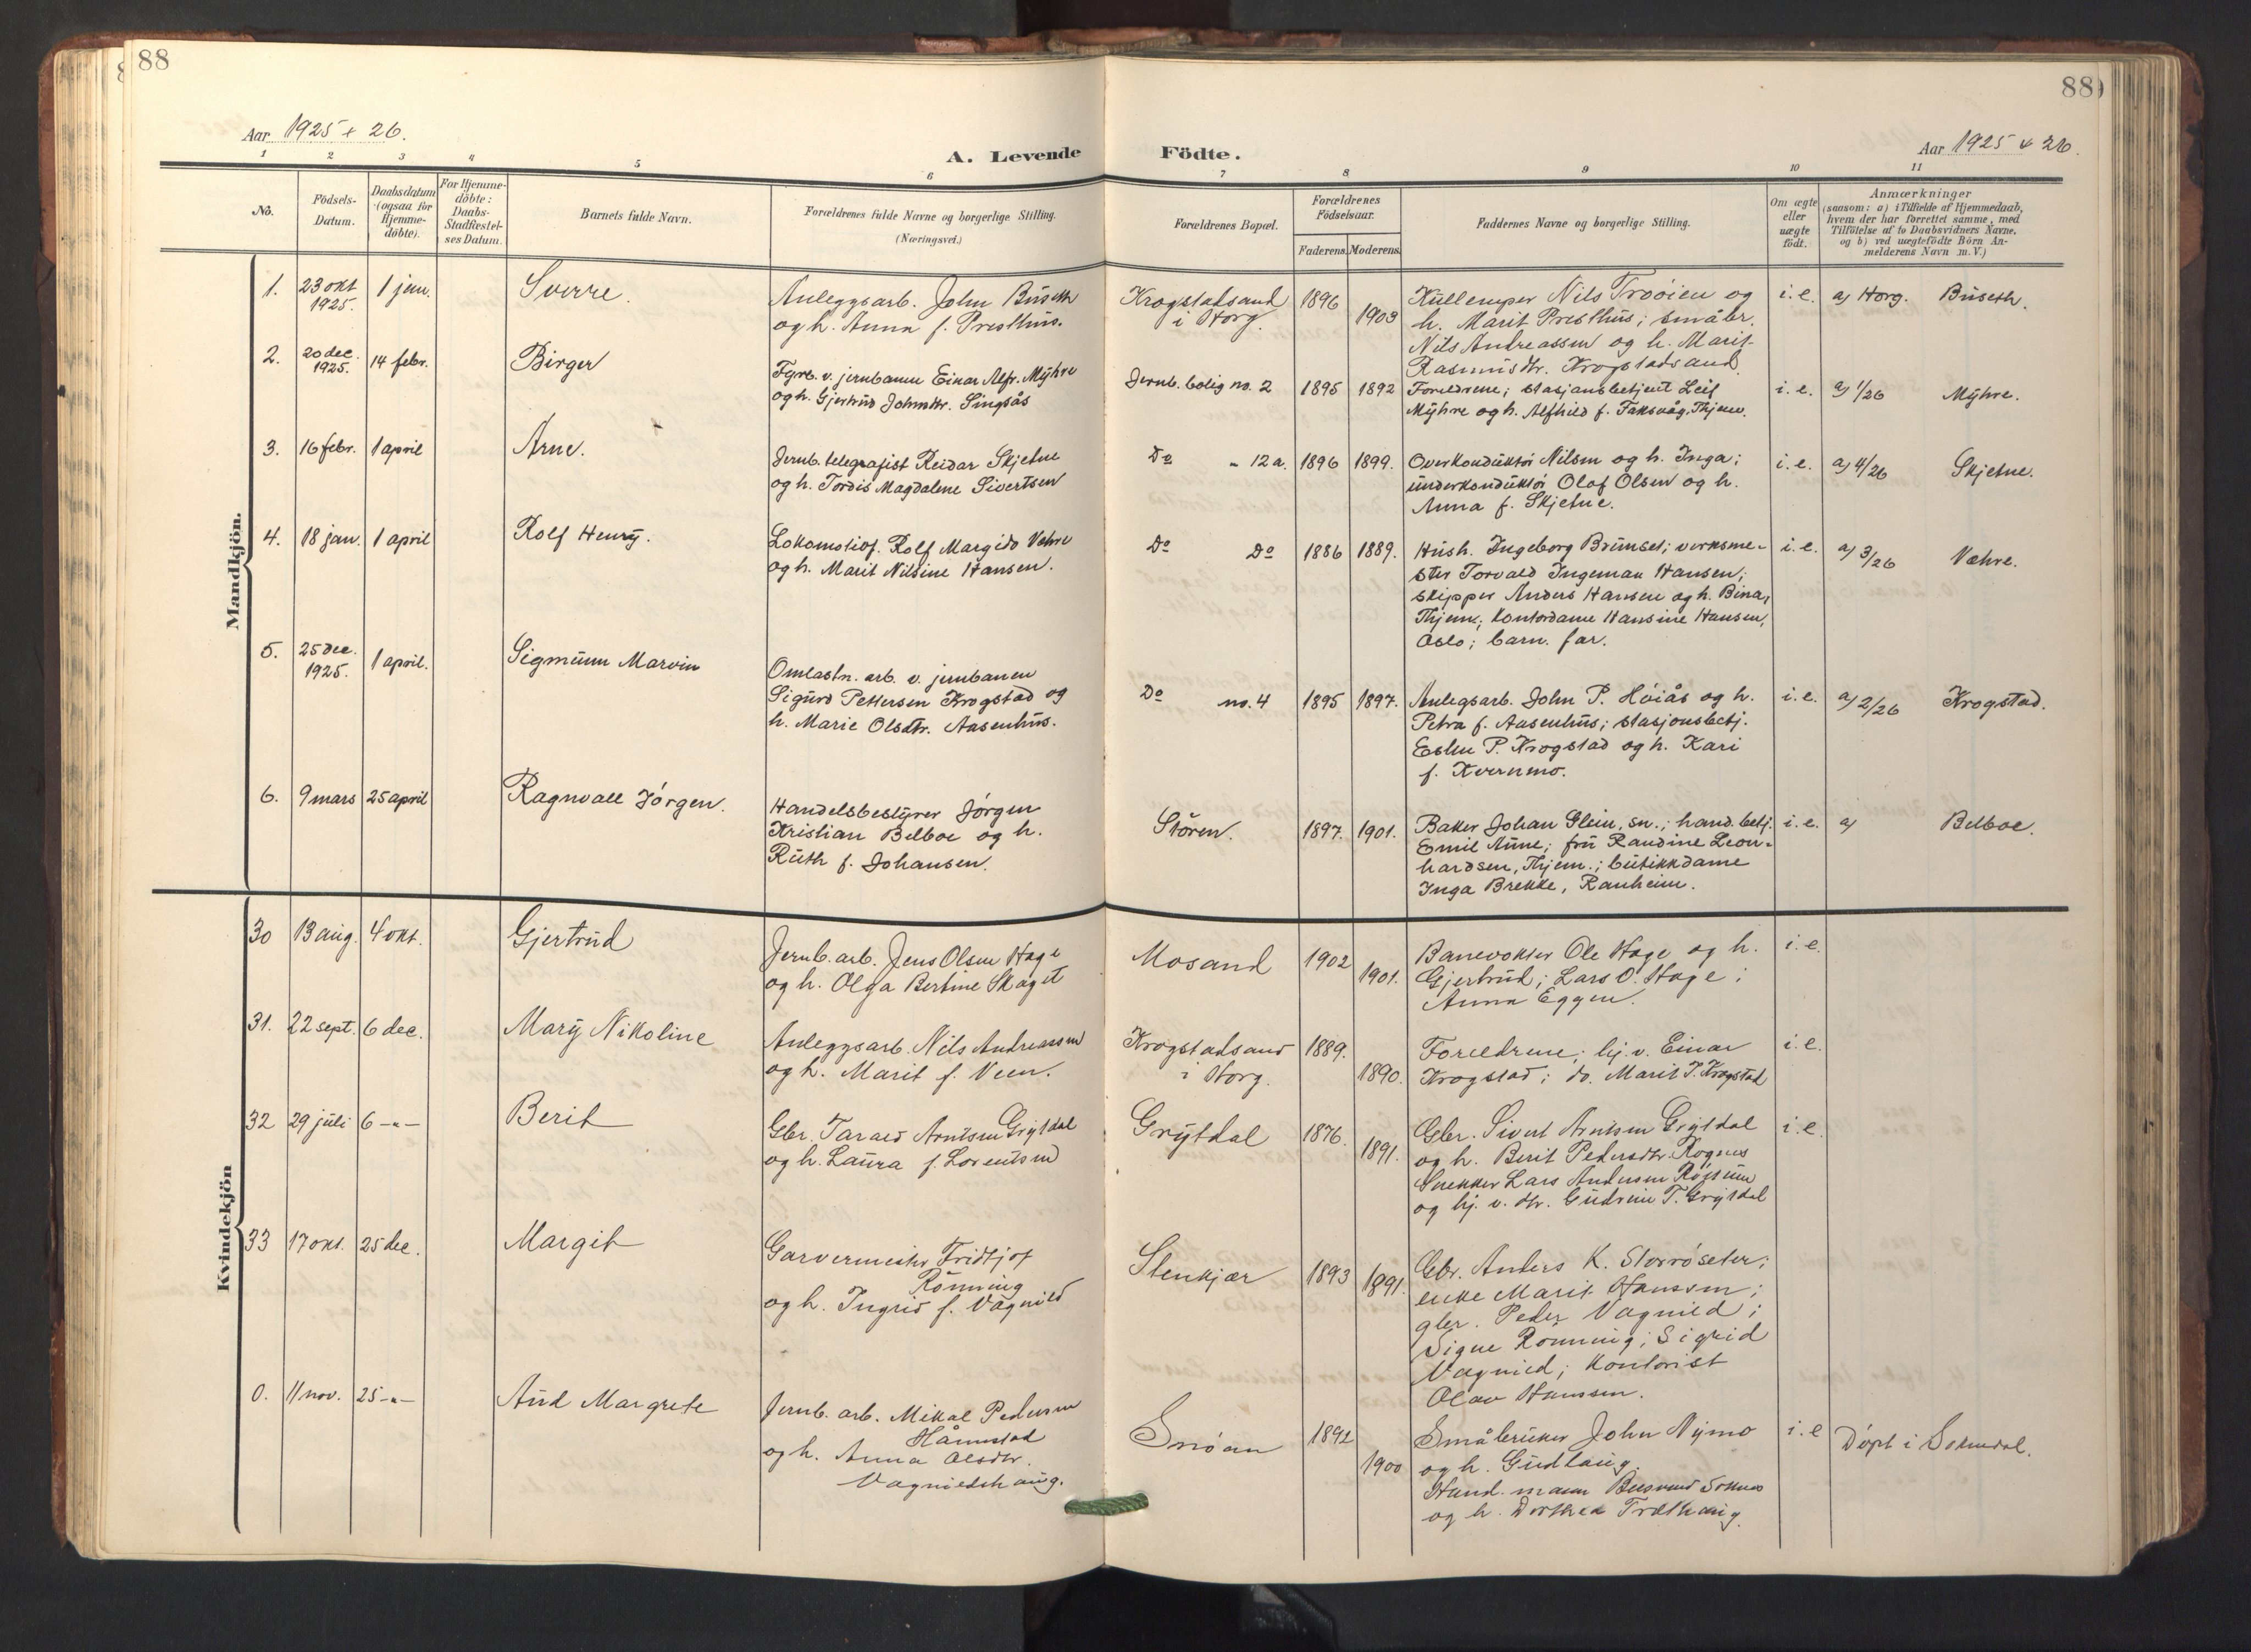 88
88
Aar 1925 + 26.
A. Levende
Födte.
Aar 1925 & 26.
1 2 3 4 5 6 7 8 9 10 11
No.
Födsels-
Datum.
Daabsdatum
(ogsaa for
Hjemme-
döbte).
For Hjemme-
döbte:
Daabs-
Stadfæstel-
ses Datum.
Barnets fulde Navn.
Forældrenes fulde Navne og borgerlige Stilling.
(Næringsvei.)
Forældrenes Bopæl.
Forældrenes
Födselsaar.
Faderens. Moderens.
Faddernes Navne og borgerlige Stilling.
Om ægte
eller
uægte
födt.
Anmærkninger
(saasom: a) i Tilfælde af Hjemmedaab,
hvem der har forrettet samme, med
Tilföielse af to Daabsvidners Navne,
og b) ved uægtefödte Börn An-
melderens Navn m. V.)
Mandkjön.
1. 23 okt
1925.
1 jan.
Sverre.
Anleggsarb. John Buseth
og h. Anna f. Presthus.
Krogstadsand
i Horg.
1896
1903
Nils Trøøien og
h. Marit Presthus; småbr.
Nils Andreassen og h. Marit
Rasmusdtr. Krogstadsand
i. e. a) Horg. Buseth.
2. 20 dec.
1925.
14 febr.
Birger
Fyrb. v. jernbanen Einar Alfr. Myhre
og h. Gjertrud Johnsdtr. Singsås
Jernb. bolig no. 2
1895 1892
Foreldrene; stasjonsbetjent Leif
Myhre og h. Alfhild f. Taksvåg, Thjem.
i. e. a) 1/26 Myhre.
3. 16 febr. 1 april
Arne.
Jernb. telegrafist Reidar Skjetne
og h. Tordis Magdalene Sivertsen
Do " 12 a.
1896 1899.
Overkonduktør Nilsen og h. Inga;
underkonduktør Olaf Olsen og h.
Anna f. Skjetne.
i. e. a) 4/26 Skjetne.
4. 18 jan. 1 april
Rolf Henry.
Lokomotivf. Rolf Margido Væhre
og h. Marit Nilsine Hansen.
Do Do
1886 1889.
Hush. Ingeborg Brumset; verksme-
ster Torvald Ingeman Hansen;
skipper Anders Hansen og h. Bina,
Thjem; kontordame Hansine Hansen,
Oslo; barn. far.
i. e. a) 3/26 Væhre.
5. 25 dec.
1925.
1 april.
Sigmunn Marvin
Omlastn. arb. v. jernbanen
Sigurd Pettersen Krogstad og
h. Marie Olsdtr. Aasenhus.
Do no. 4
1895 1897.
Anlegsarb. John P. Høiås og h.
Petra f. Aasenhus; stasjonsbetj.
Esten P. Krogstad og h. Kari
f. Kvernmo.
i. e. a) 2/26 Krogstad.
6. 9 mars 25 april
Ragnvall Jørgen.
Handelsbestyrer Jørgen
Kristian Belboe og h.
Ruth f. Johansen.
Støren.
1897. 1901.
Baker Johan Glein, sn.; hand. betj.
Emil Aune; fru Randine Leon-
hardsen, Thjem.; butikkdame
Inga Brekke, Ranheim.
i. e. a) Belboe.
Kvindekjön
30 13 aug. 4 okt.
Gjertrud
Jernb. arb. Jens Olsen Hage
og h. Olga Bertine Skaget
Mosand
1902
1901.
Banevokter Ole Hage og h.
Gjertrud; Lars O. Hage;
Anna Eggen.
i. e.
31. 22 sept. 6 dec.
Mary Nikoline
Anleggsarb. Nils Andreassen
og h. Marit f. Veen.
Krogstadsand
i Horg.
1889.
1890.
Foreldrene; hj. v. Einar
Krogstad; do. Marit J. Krogstad
i. e.
32 29 juli 6 -"-
Berit
Gbr. Tarald Arntsen Grytdal
og h. Laura f. Lorentsen
Grytdal
1876.
1891.
Gbr. Sivert Arntsen Grytdal
og h. Berit Pedersdtr. Rognes
Snekker Lars Andersen Rossum
og hj. v. dtr. Gudrun T. Grytdal
i. e.
33 17 okt. 25 dec.
Margit
Garvermester Fridtjof
Rønning
og h. Ingrid f. Vagnild
Stenkjær
1893 1891.
Gbr. Anders K. Storrøseter;
enke Marit Hanssen;
gbr. Peder Vagnild;
Signe Rønning; Sigrid
Vagnild; kontorist
Olav Hanssen.
0. 11 nov. 25 -"-
Aud Margrete
Jernb. arb. Mikal Pedersen
Håmstad
og h. Anna Olsdtr.
Vagnildshaug.
Snøan
1892
1900
Småbruker John Nymo
og h. Gudlaug.
Hand. mann Soknes
og h. Dorthea Træthaug.
i. e
Døpt i Soknedal.